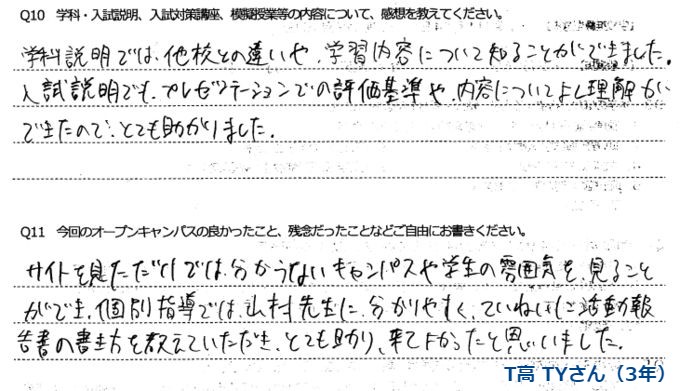 Q10 学科・入試説明、入試対策講座、模擬授業等の内容について、感想を教えてください。
学科説明では、他校との違いや、学習内容について知ることができました。
入試説明でも、プレゼンテーションでの評価基準や、内容についてよし理解が
できたので、とても助かりました。
Q11 今回のオープンキャンパスの良かったこと、残念だったことなどご自由にお書きください。
サイトを見ただけでは分からないキャンパスや学生の雰囲気を、見ること
ができ、個別指導では、山村先生に、分かりやすく、ていねいに活動報
告書の書き方を教えていただき、とても助かり、来てよかったと思いました。
T高 TYさん（3年）